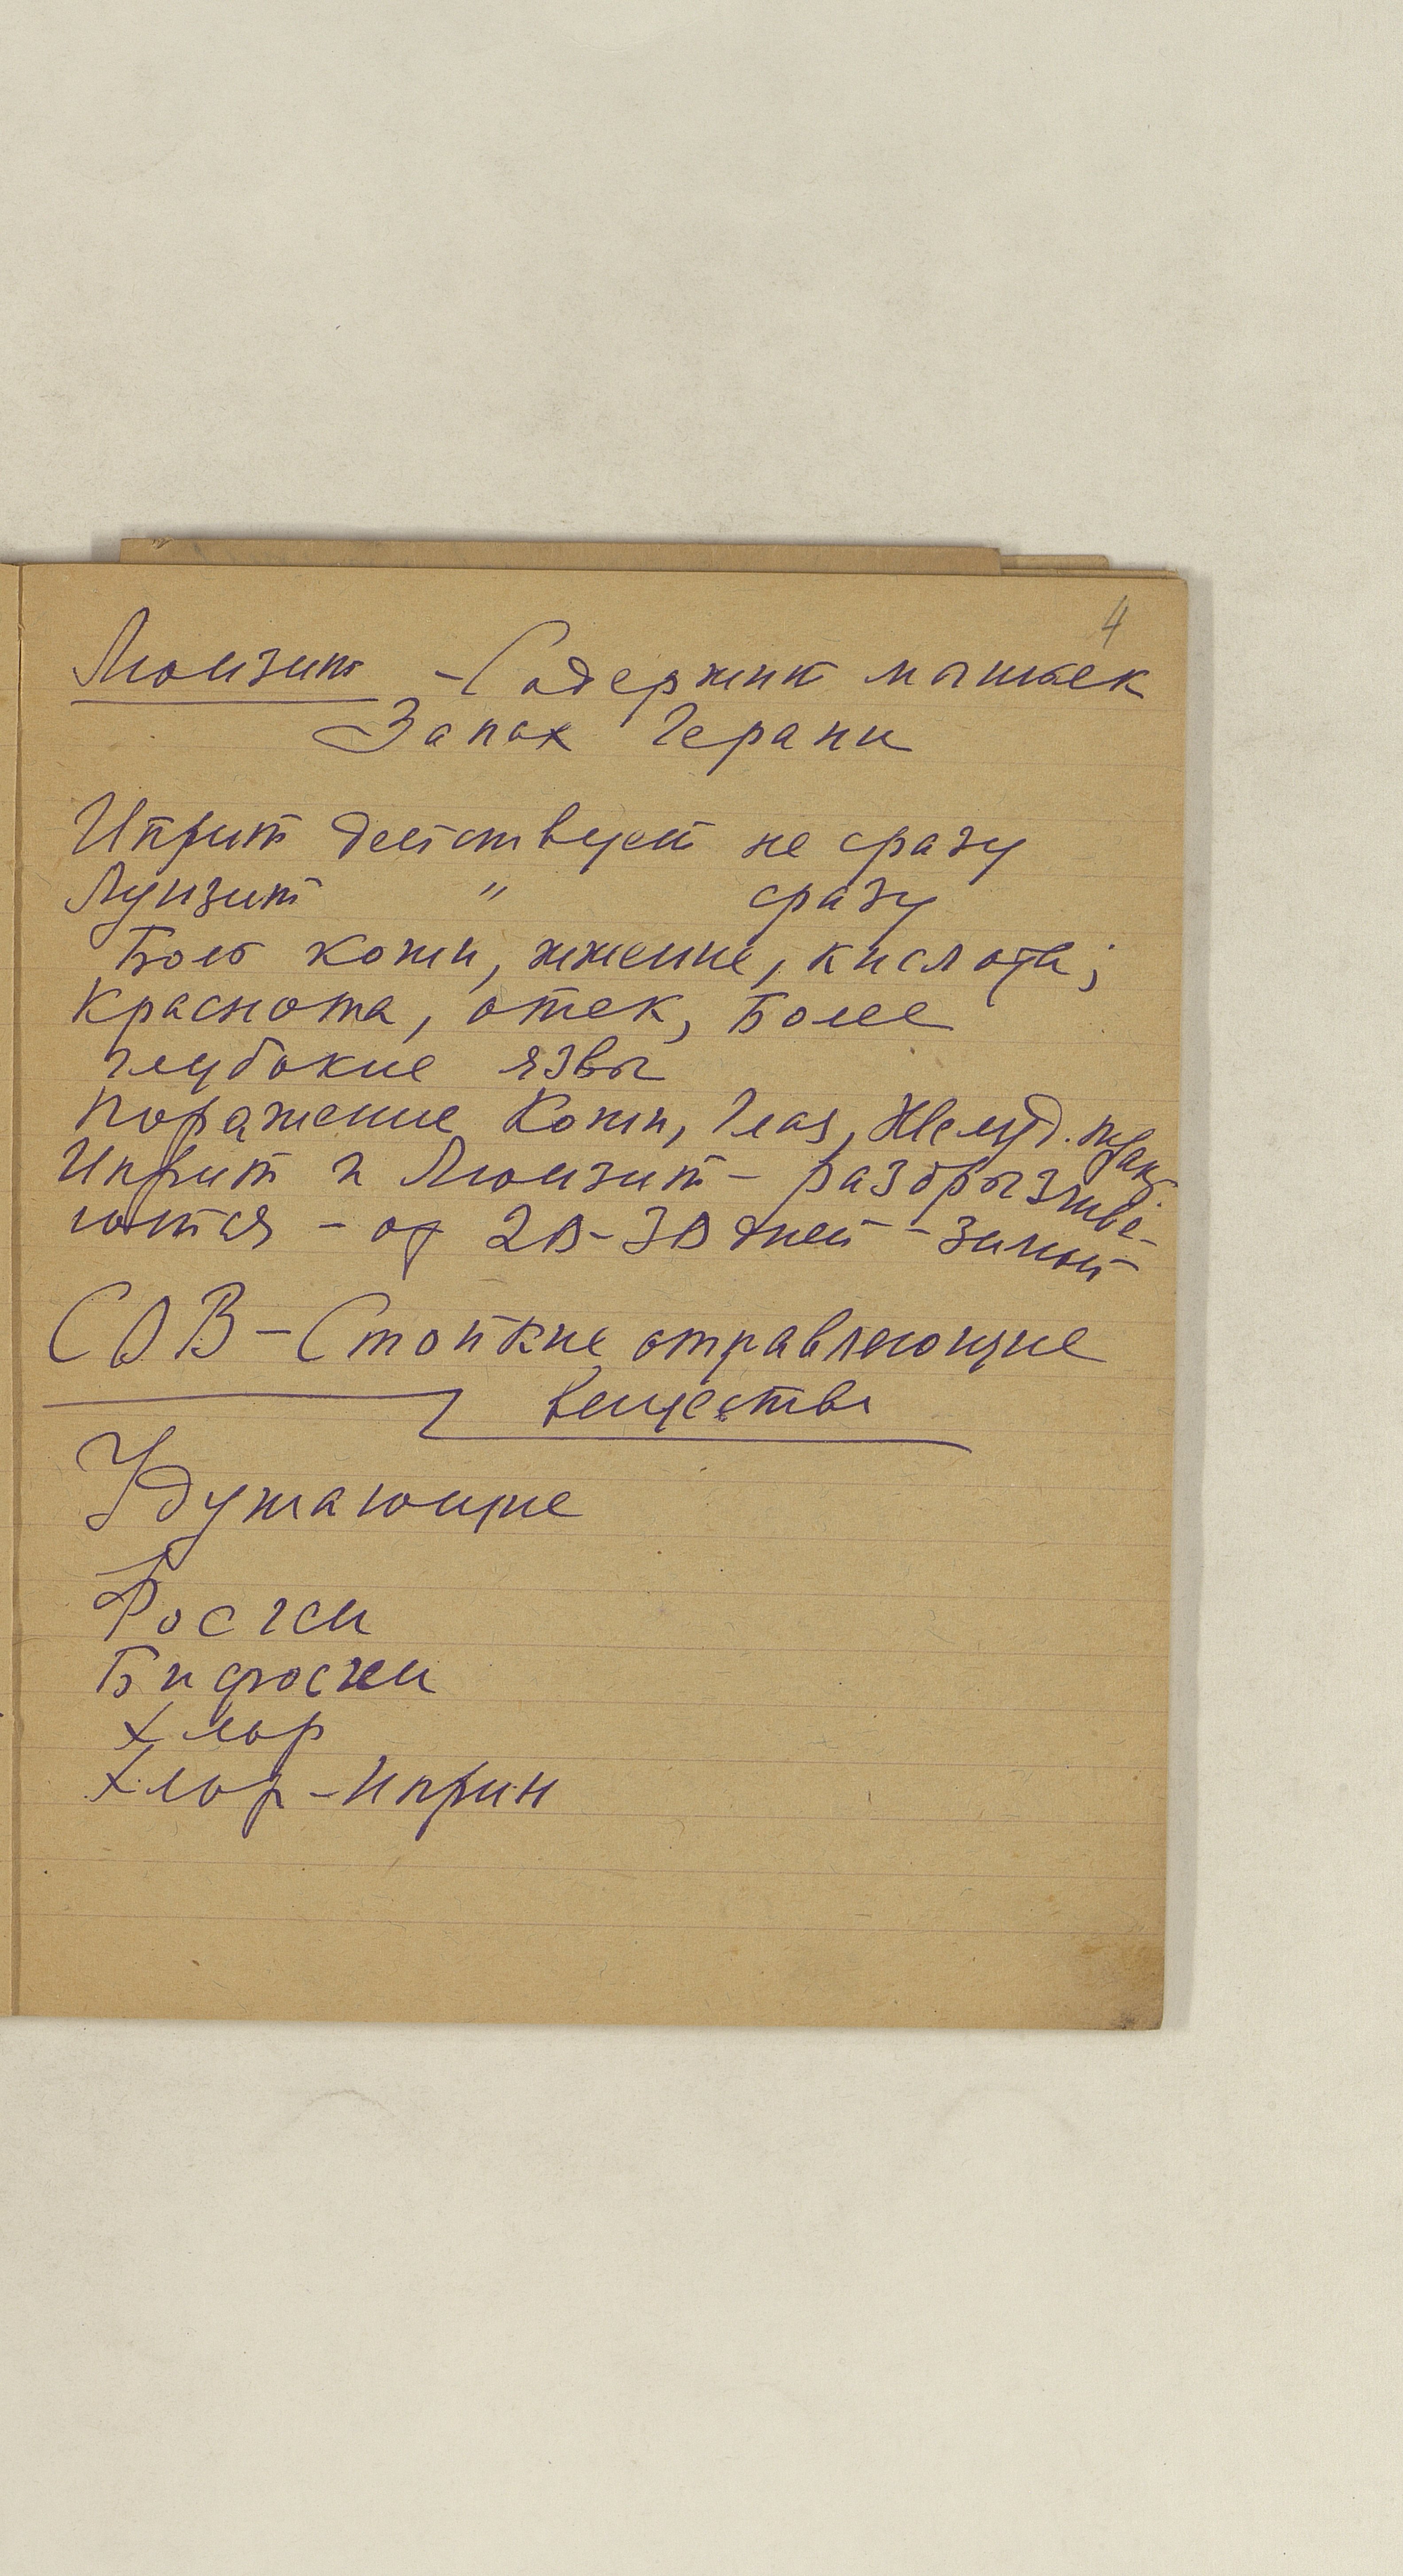 4
Люизит - Содержит мышьяк
Запах Герани
Иприт действует не сразу
Луизит " сразу
Боль кожи, жжение, кислота;
краснота, отек, Более
глубокие язвы
Поражение Кожи, Глаз, Желуд. тракт.
Иприт и Люизит - разбрызгива-
ются - от 20-30 дней - зимой
СОВ - Стойкие отравляющие
вещества
Удушающие
Фосген
Бифосген
Хлор
Хлор-Иприн